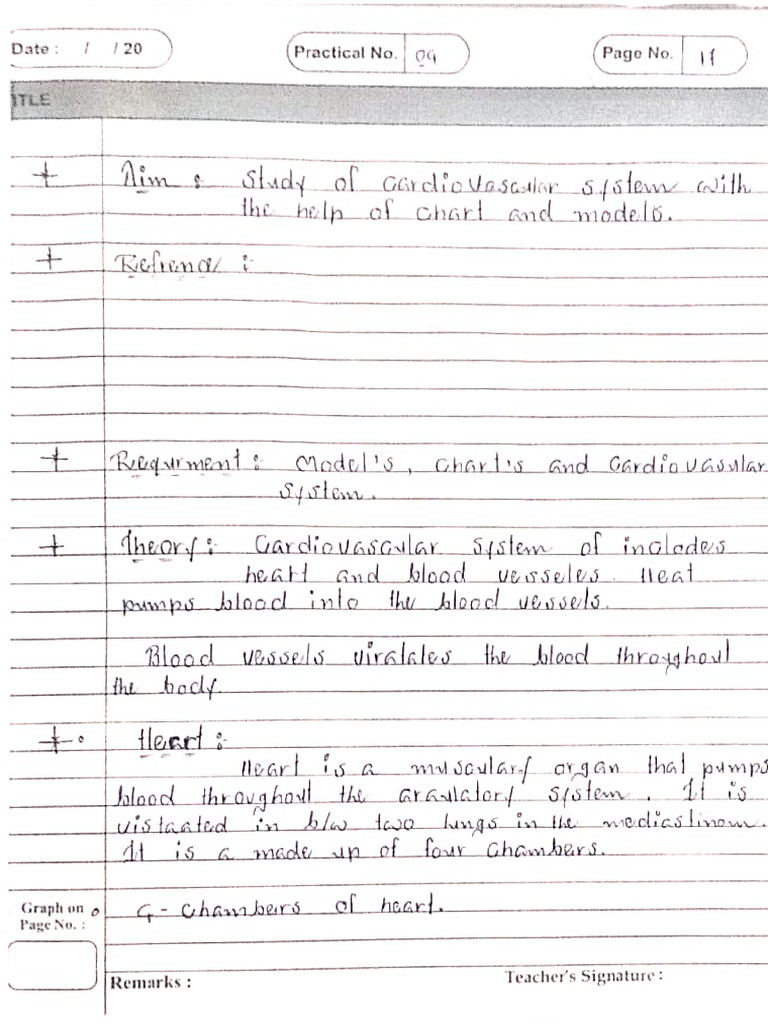 Date : / / 20
Practical No. 09
Page No. 11
ITLE
+ Aim : Study of cardiovascular system with
the help of chart and models.
+ Refrence :
+ Requrment : Model's, chart's and cardiovasular
system.
+ Theory : Cardiovascular system of includes
heart and blood vesseles. Heat
pumps blood into the blood vessels.
Blood vessels the blood throughout
the body.
+ Heart :
Heart is a muscular organ that pumps
blood throughout the system. It is
in b/w two lungs in the mediastinum.
It is a made up of four chambers.
4 - chambers of heart.
Graph on
Page No. :
Remarks :
Teacher's Signature :